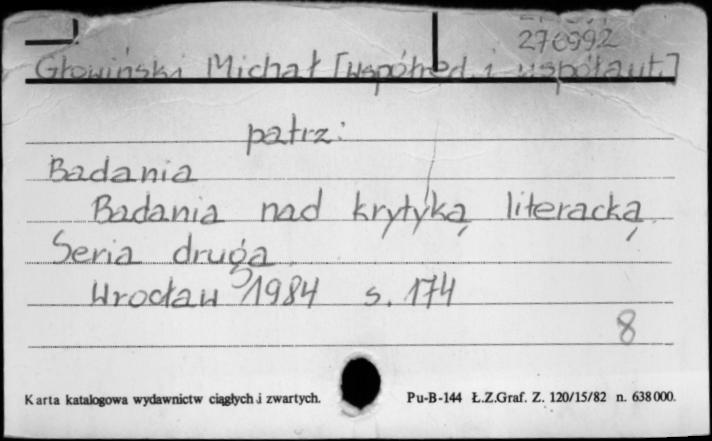 276992
Głowiński Michał [współred. i współaut.]
patrz:
Badania
Badania nad krytyką literacką.
Seria druga.
Wrocław 1984 s. 174
8
Karta katalogowa wydawnictw ciągłych i zwartych. Pu-B-144 Ł.Z.Graf. Z. 120/15/82 n. 638000.